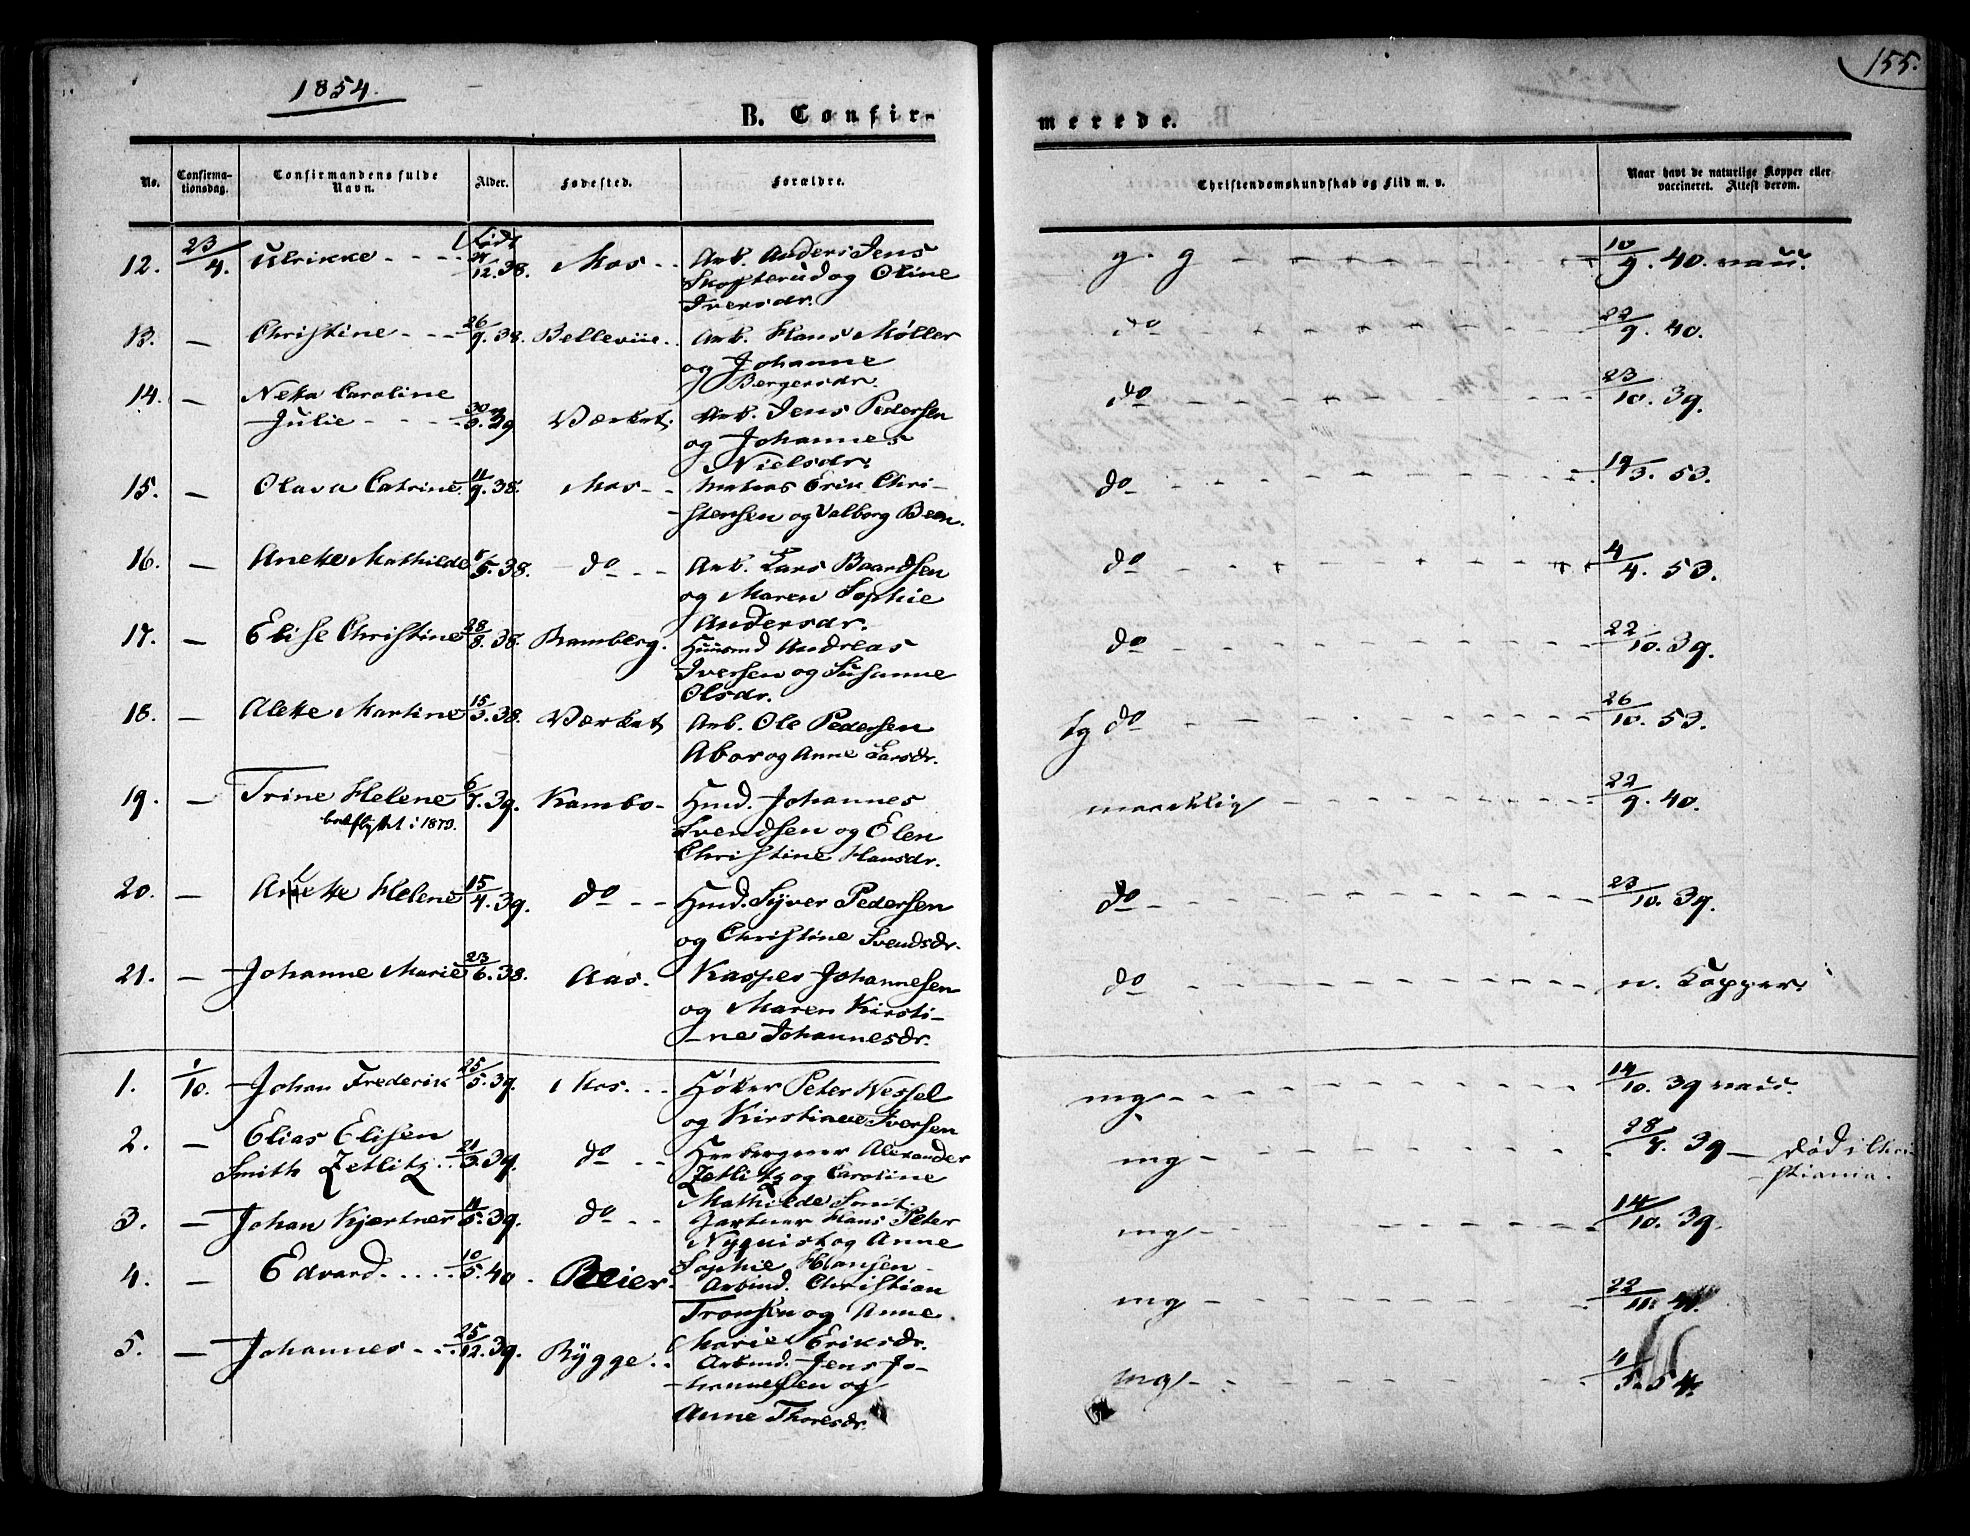 1854.
155.
B. Confir-
merede.
No.
Confirma-
tionsdag.
Confirmandens fulde
Navn.
Alder.
Fødested.
Forældre.
Christendomskundskab og Flid m. v.
Naar havt de naturlige Kopper eller
vaccineret. Attest derom.
12. 23/4. Ulrikke 12.38. Mos Arb. Anders Jens
Skofterud og Oline
Iversdr.
g. g 10/9. 40.
13. — Christine 26/9.38. Bellevüe. Arb. Hans Møller
og Johanne
Bergersdr.
do 22/9. 40.
14. — Neta Caroline
Julie 39 Værket. Arb. Jens Pedersen
og Johannes
Nielsdr.
do 23/10. 39.
15. — Olava Catrine 11/9.38. Mos Erik Chri-
stensen og Valborg
do 19/3. 53.
16. — Anette Mathilde 38. do Arb. Lars Baardsen
og Maren Sophie
Andersdr.
do 4/4. 53.
17. — Elise Christine 28/8.38. Ramberg. Huusmd Andreas
Iversen og Susanne
Olsdr.
do 22/10. 39.
18. — Alette Martine 15/3.38. Værket Arb. Ole Pedersen
Abor og Anne Larsdr.
tg do 26/10. 53.
19. — Trine Helene 6/7.39. Kambo Hmd. Johannes
i 1873. Svendsen og Elen
Christine Hansdr.
maadelig 22/9. 40.
20. — Alette Helene 15/4.39. do Hmd. Syver Pedersen
og Christine Svendsdr.
do 23/10. 39.
21. — Johanne Marie 23/6.38. Aas. Kasper Johannesen
og Maren Kirsti-
ne Johannesdr.
do n. Kopper.
1. 1/10. Johan Frederik 25/5.39. Mos. Høker Peter Wessel
og Kirstiane Iversen
mg 14/10. 39
2. — Elias Elisen
Smith Zetlitz 21/3.39. do Alexander
Zetlitz og Caroline
Mathilde Smit.
mg 28/7. 39 Død i Chri-
stiania.
3. — Johan Kjertner 11/5.39. do Gartner Hans Peter
Nyquist og Anne
Sophie Hansen
mg 14/10. 39.
4. — Edvard 10/5.40. Reier. Arbmd. Christian
Tronsen og Anne
Marie Eriksdr.
mg 22/11.
5. — Johannes 25/12.39. Rygge. Arbmd. Jens Jo-
hannesen og
Anne Thoresdr.
mg 4/5.54.